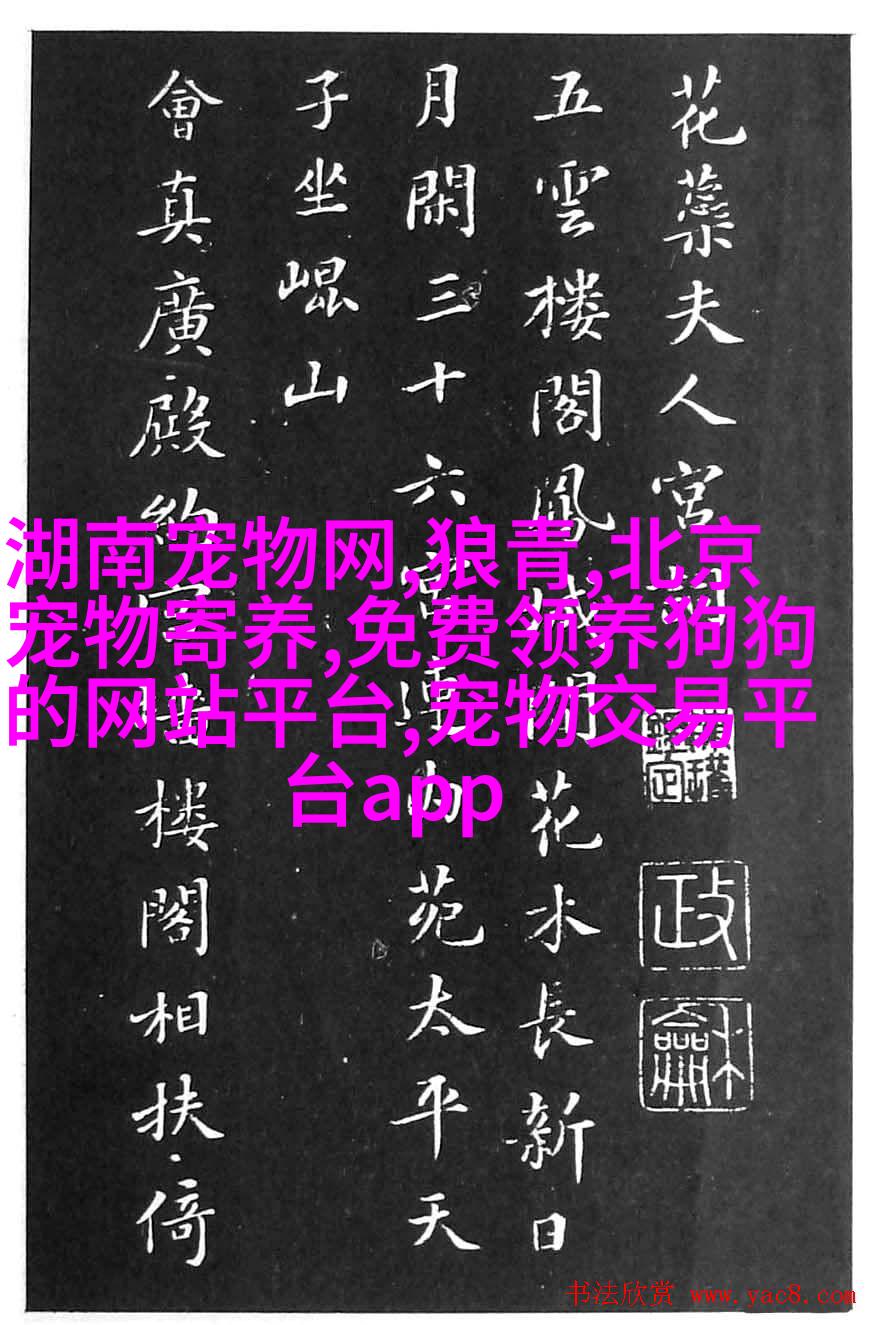 花蘂夫人宮詞
五雲楼閣鳳城間花水長新日
月閑三十六宮連内苑太平天
子坐崐山
會真廣殿約宮墻楼閣相扶倚
政
龢
湖南宠物网,狼青,北京
宠物寄养,免费领养狗狗
的网站平台,宠物交易平
台app
书法欣赏 www.yac8.com